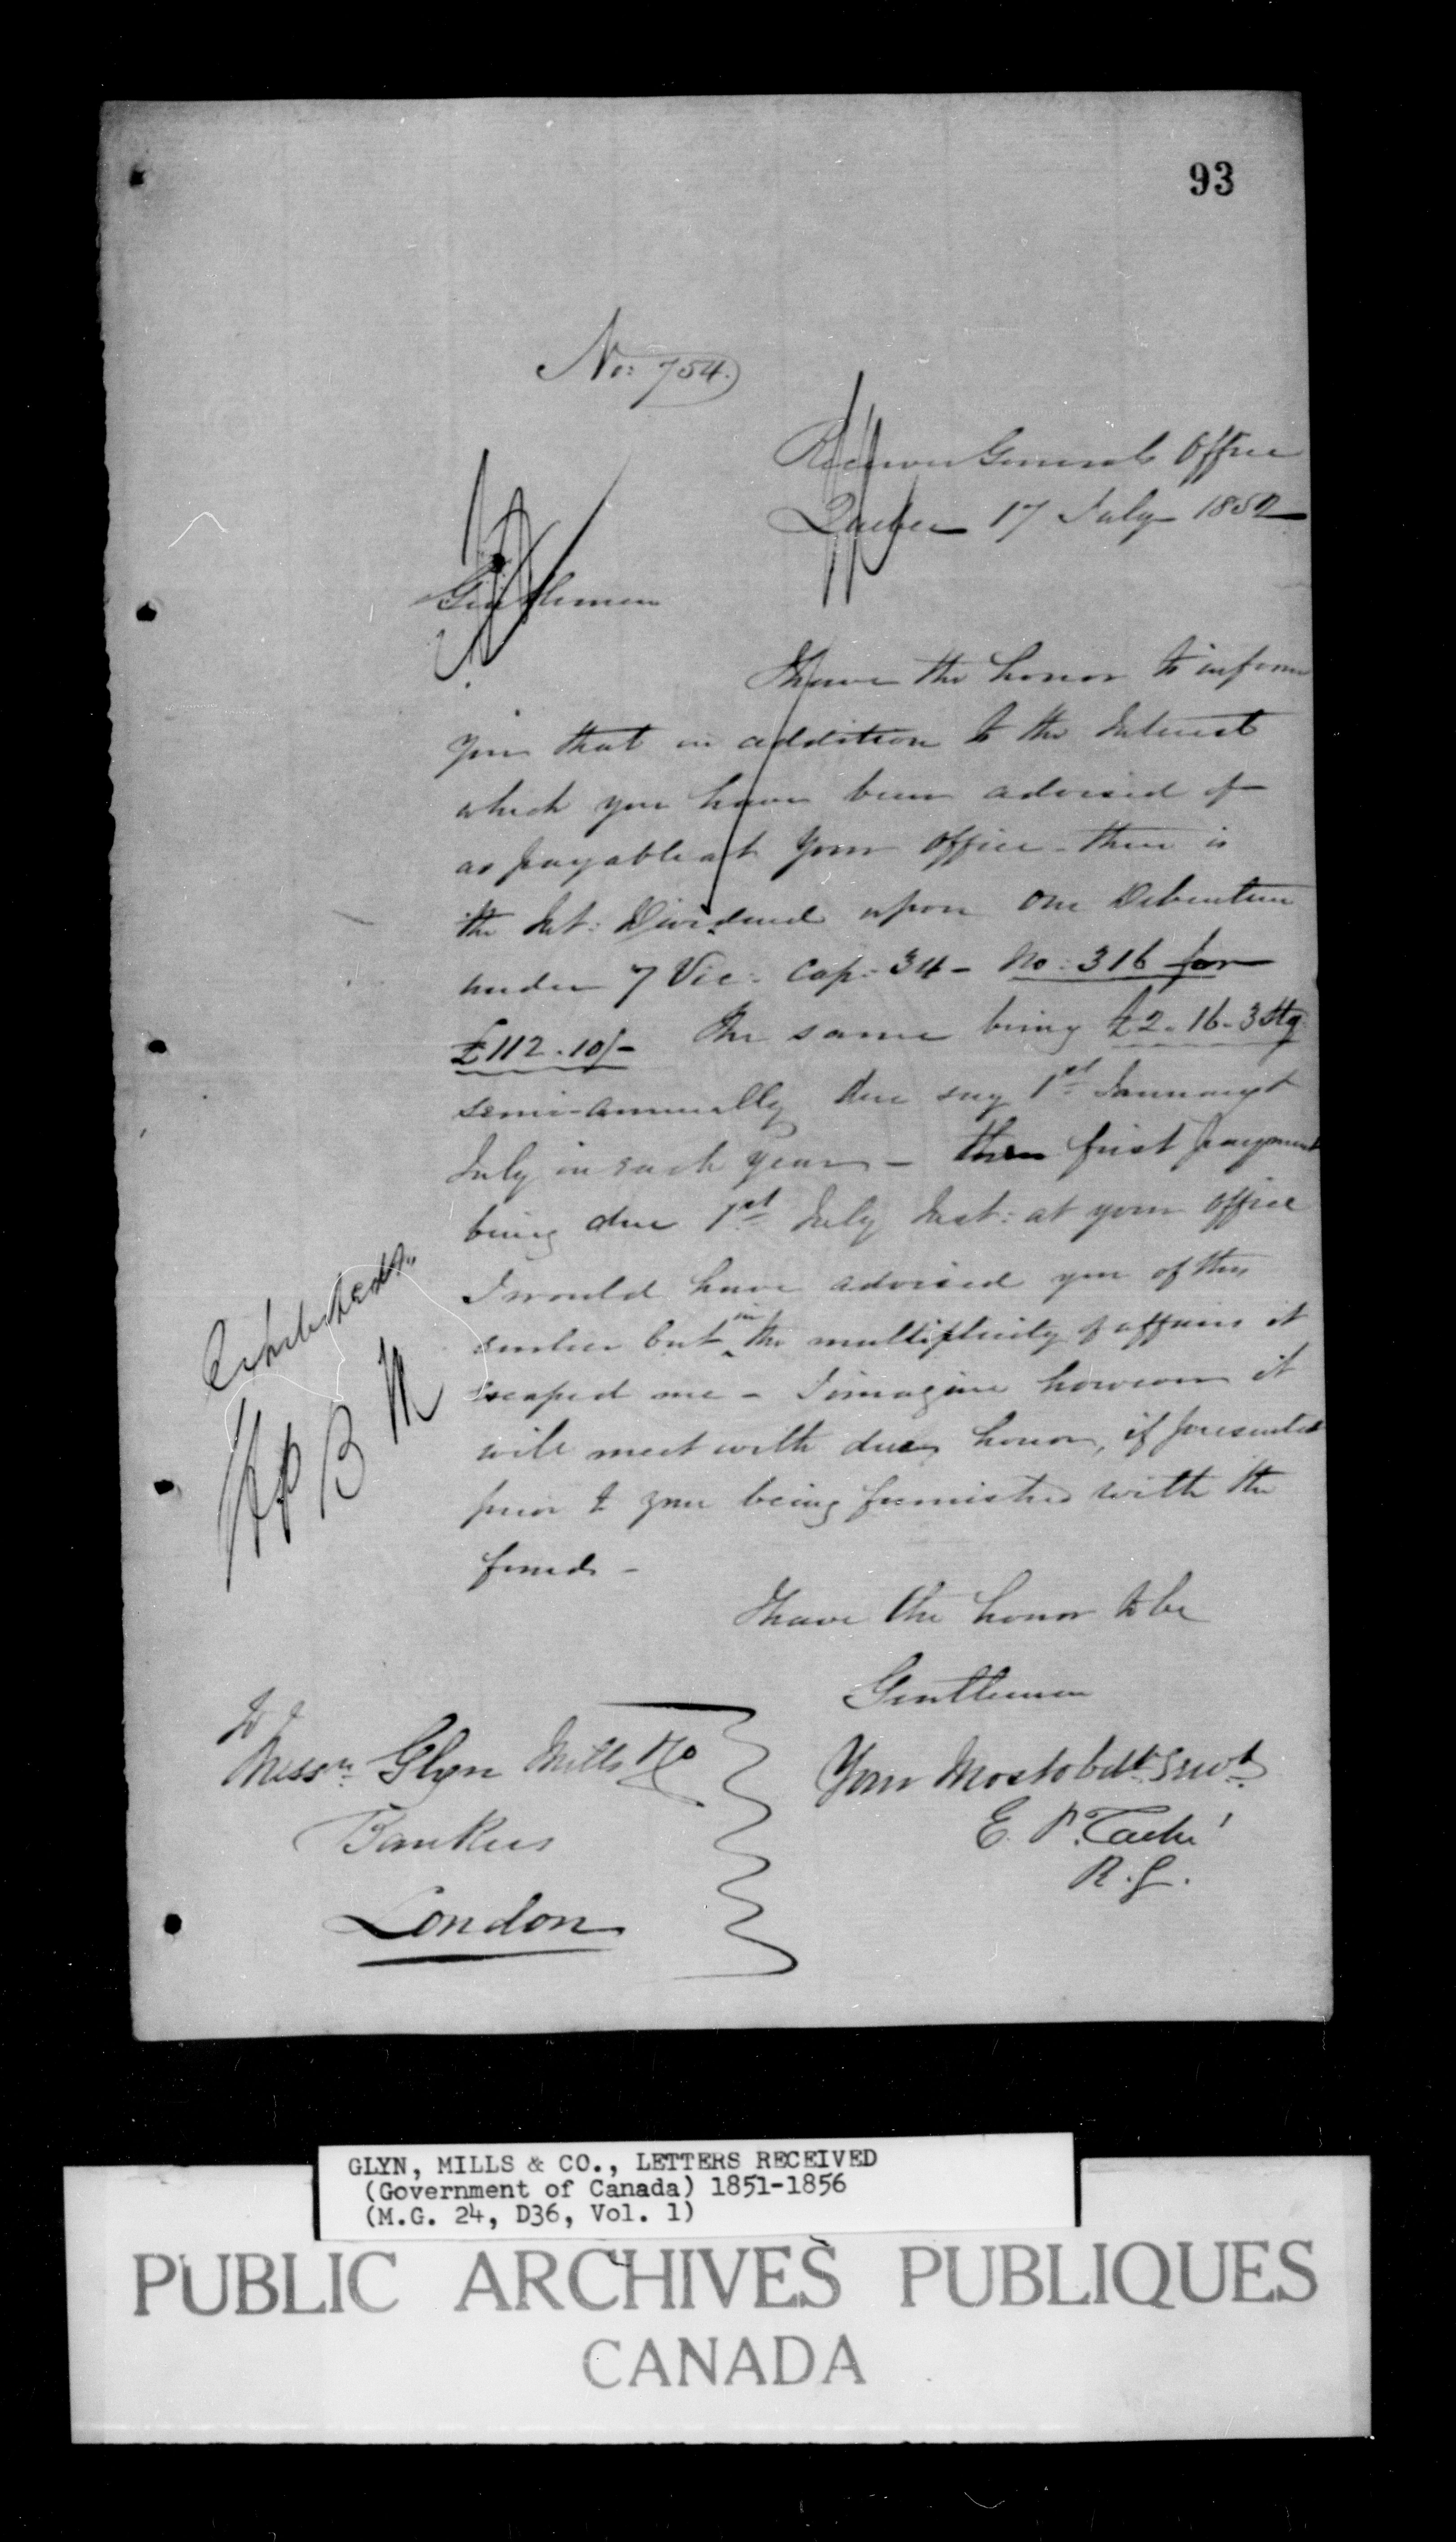 93
No: 754.
Receiver Generals Office
Quebec 17 July 1852
Gentlemen
I have the honor to inform
you that in addition to the Interest
which you have been advised of
as payable at your office - there is
the Int: Dividend upon One Debenture
under 7 Vic: Cap: 34 - No: 316 for
£112.10/- the same being £2.16.3 Stg
semi-annually due say 1st January &
July in each year - the first payment
being due 1st July Inst: at your office
I would have advised you of this
earlier but in the multiplicity of affairs it
escaped me - I imagine however it
will meet with due honor, if presented
prior to your being furnished with the
funds -
I have the honor to be
Gentlemen
Your Most obdt Servt
E. P. Taché
R. G.
To
Messrs Glyn Mills & Co
Bankers
London
B
M
GLYN, MILLS & CO., LETTERS RECEIVED
(Government of Canada) 1851-1856
(M.G. 24, D36, Vol. 1)
PUBLIC ARCHIVES PUBLIQUES
CANADA